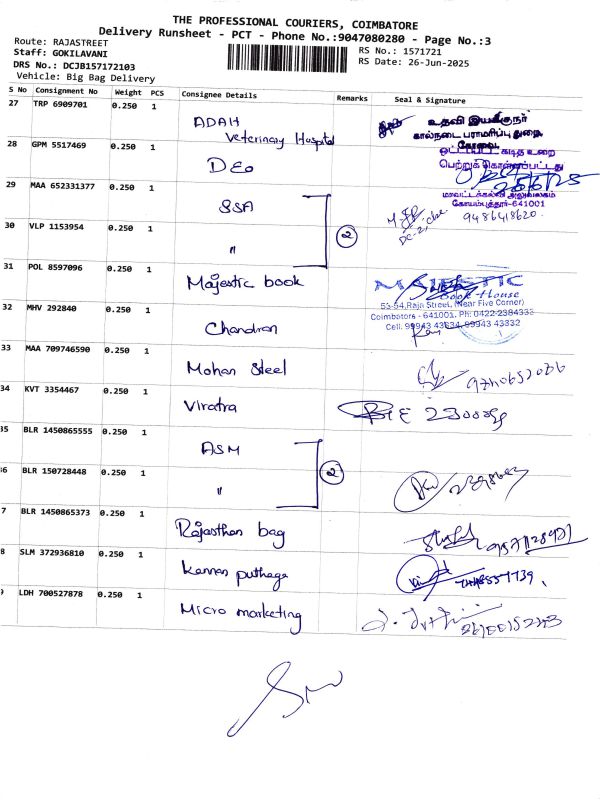 THE PROFESSIONAL COURIERS, COIMBATORE
Delivery Runsheet - PCT - Phone No.:9047080280 - Page No.:3
Route: RAJASTREET
RS No.: 1571721
Staff: GOKILAVANI
RS Date: 26-Jun-2025
DRS No.: DCJB157172103
Vehicle: Big Bag Delivery
S No Consignment No Weight PCS Consignee Details Remarks Seal & Signature
27 TRP 6909701 0.250 1
ADAH
Veterinary Hospital
உதவி இயக்குநர்
கால்நடை பராமரிப்பு துறை,
கோவை
28 GPM 5517469 0.250 1
DEO
கடித உறை
பெற்றுக் கொள்ளப்பட்டது
மாவட்டக்கல்வி அலுவலகம்
கோயம்புத்தூர்-641001
29 MAA 652331377 0.250 1
SSA
9486418620.
30 VLP 1153954 0.250 1
"
2
31 POL 8597096 0.250 1
Majestic book
MAJESTIC
Book House
53-54, Raja Street, (Near Five Corner)
Coimbatore - 641001. Ph: 0422-2384333
Cell: 99943 43334, 99943 43332
32 MHV 292840 0.250 1
Chandran
33 MAA 709746590 0.250 1
Mohan Steel
34 KVT 3354467 0.250 1
Viratra
35 BLR 1450865555 0.250 1
ASM
36 BLR 150728448 0.250 1
"
2
7 BLR 1450865373 0.250 1
Rajasthan bag
8 SLM 372936810 0.250 1
Kannan puthaga
9 LDH 700527878 0.250 1
Micro marketing